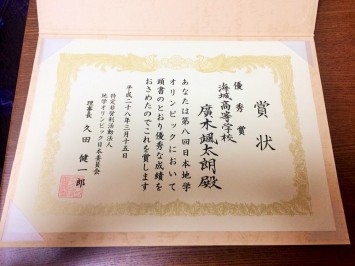 賞状
優秀賞
海城高等学校
廣木颯太朗殿
あなたは第八回日本地学
オリンピックにおいて
頭書のとおり優秀な成績を
おさめたのでこれを賞します
平成二十八年三月十五日
特定非営利活動法人
地学オリンピック日本委員会
理事長 久田健一郎